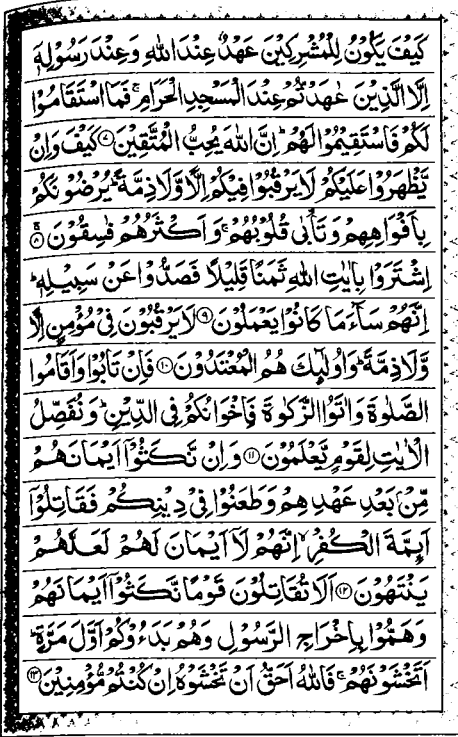 كَيْفَ يَكُوْنُ لِلْمُشْرِكِيْنَ عَهْدٌ عِنْدَ اللّٰهِ وَعِنْدَ رَسُوْلِهٖۤ
اِلَّا الَّذِيْنَ عٰهَدْتُّمْ عِنْدَ الْمَسْجِدِ الْحَرَامِۚ فَمَا اسْتَقَامُوْا
لَكُمْ فَاسْتَقِيْمُوْا لَهُمْؕ اِنَّ اللّٰهَ يُحِبُّ الْمُتَّقِيْنَ ۷ كَيْفَ وَاِنْ
يَّظْهَرُوْا عَلَيْكُمْ لَا يَرْقُبُوْا فِيْكُمْ اِلًّا وَّلَا ذِمَّةًؕ يُرْضُوْنَكُمْ
بِاَفْوَاهِهِمْ وَتَاْبٰى قُلُوْبُهُمْۚ وَاَكْثَرُهُمْ فٰسِقُوْنَ ۸
اِشْتَرَوْا بِاٰيٰتِ اللّٰهِ ثَمَنًا قَلِيْلًا فَصَدُّوْا عَنْ سَبِيْلِهٖؕ
اِنَّهُمْ سَآءَ مَا كَانُوْا يَعْمَلُوْنَ ۹ لَا يَرْقُبُوْنَ فِيْ مُؤْمِنٍ اِلًّا
وَّلَا ذِمَّةًؕ وَاُولٰٓئِكَ هُمُ الْمُعْتَدُوْنَ ۱۰ فَاِنْ تَابُوْا وَاَقَامُوا
الصَّلٰوةَ وَاٰتَوُا الزَّكٰوةَ فَاِخْوَانُكُمْ فِي الدِّيْنِؕ وَنُفَصِّلُ
الْاٰيٰتِ لِقَوْمٍ يَّعْلَمُوْنَ ۱۱ وَاِنْ نَّكَثُوْۤا اَيْمَانَهُمْ
مِّنْۢ بَعْدِ عَهْدِهِمْ وَطَعَنُوْا فِيْ دِيْنِكُمْ فَقَاتِلُوْۤا
اَىِٕمَّةَ الْكُفْرِۙ اِنَّهُمْ لَاۤ اَيْمَانَ لَهُمْ لَعَلَّهُمْ
يَنْتَهُوْنَ ۱۲ اَلَا تُقَاتِلُوْنَ قَوْمًا نَّكَثُوْۤا اَيْمَانَهُمْ
وَهَمُّوْا بِاِخْرَاجِ الرَّسُوْلِ وَهُمْ بَدَءُوْكُمْ اَوَّلَ مَرَّةٍؕ
اَتَخْشَوْنَهُمْۚ فَاللّٰهُ اَحَقُّ اَنْ تَخْشَوْهُ اِنْ كُنْتُمْ مُّؤْمِنِيْنَ ۱۳